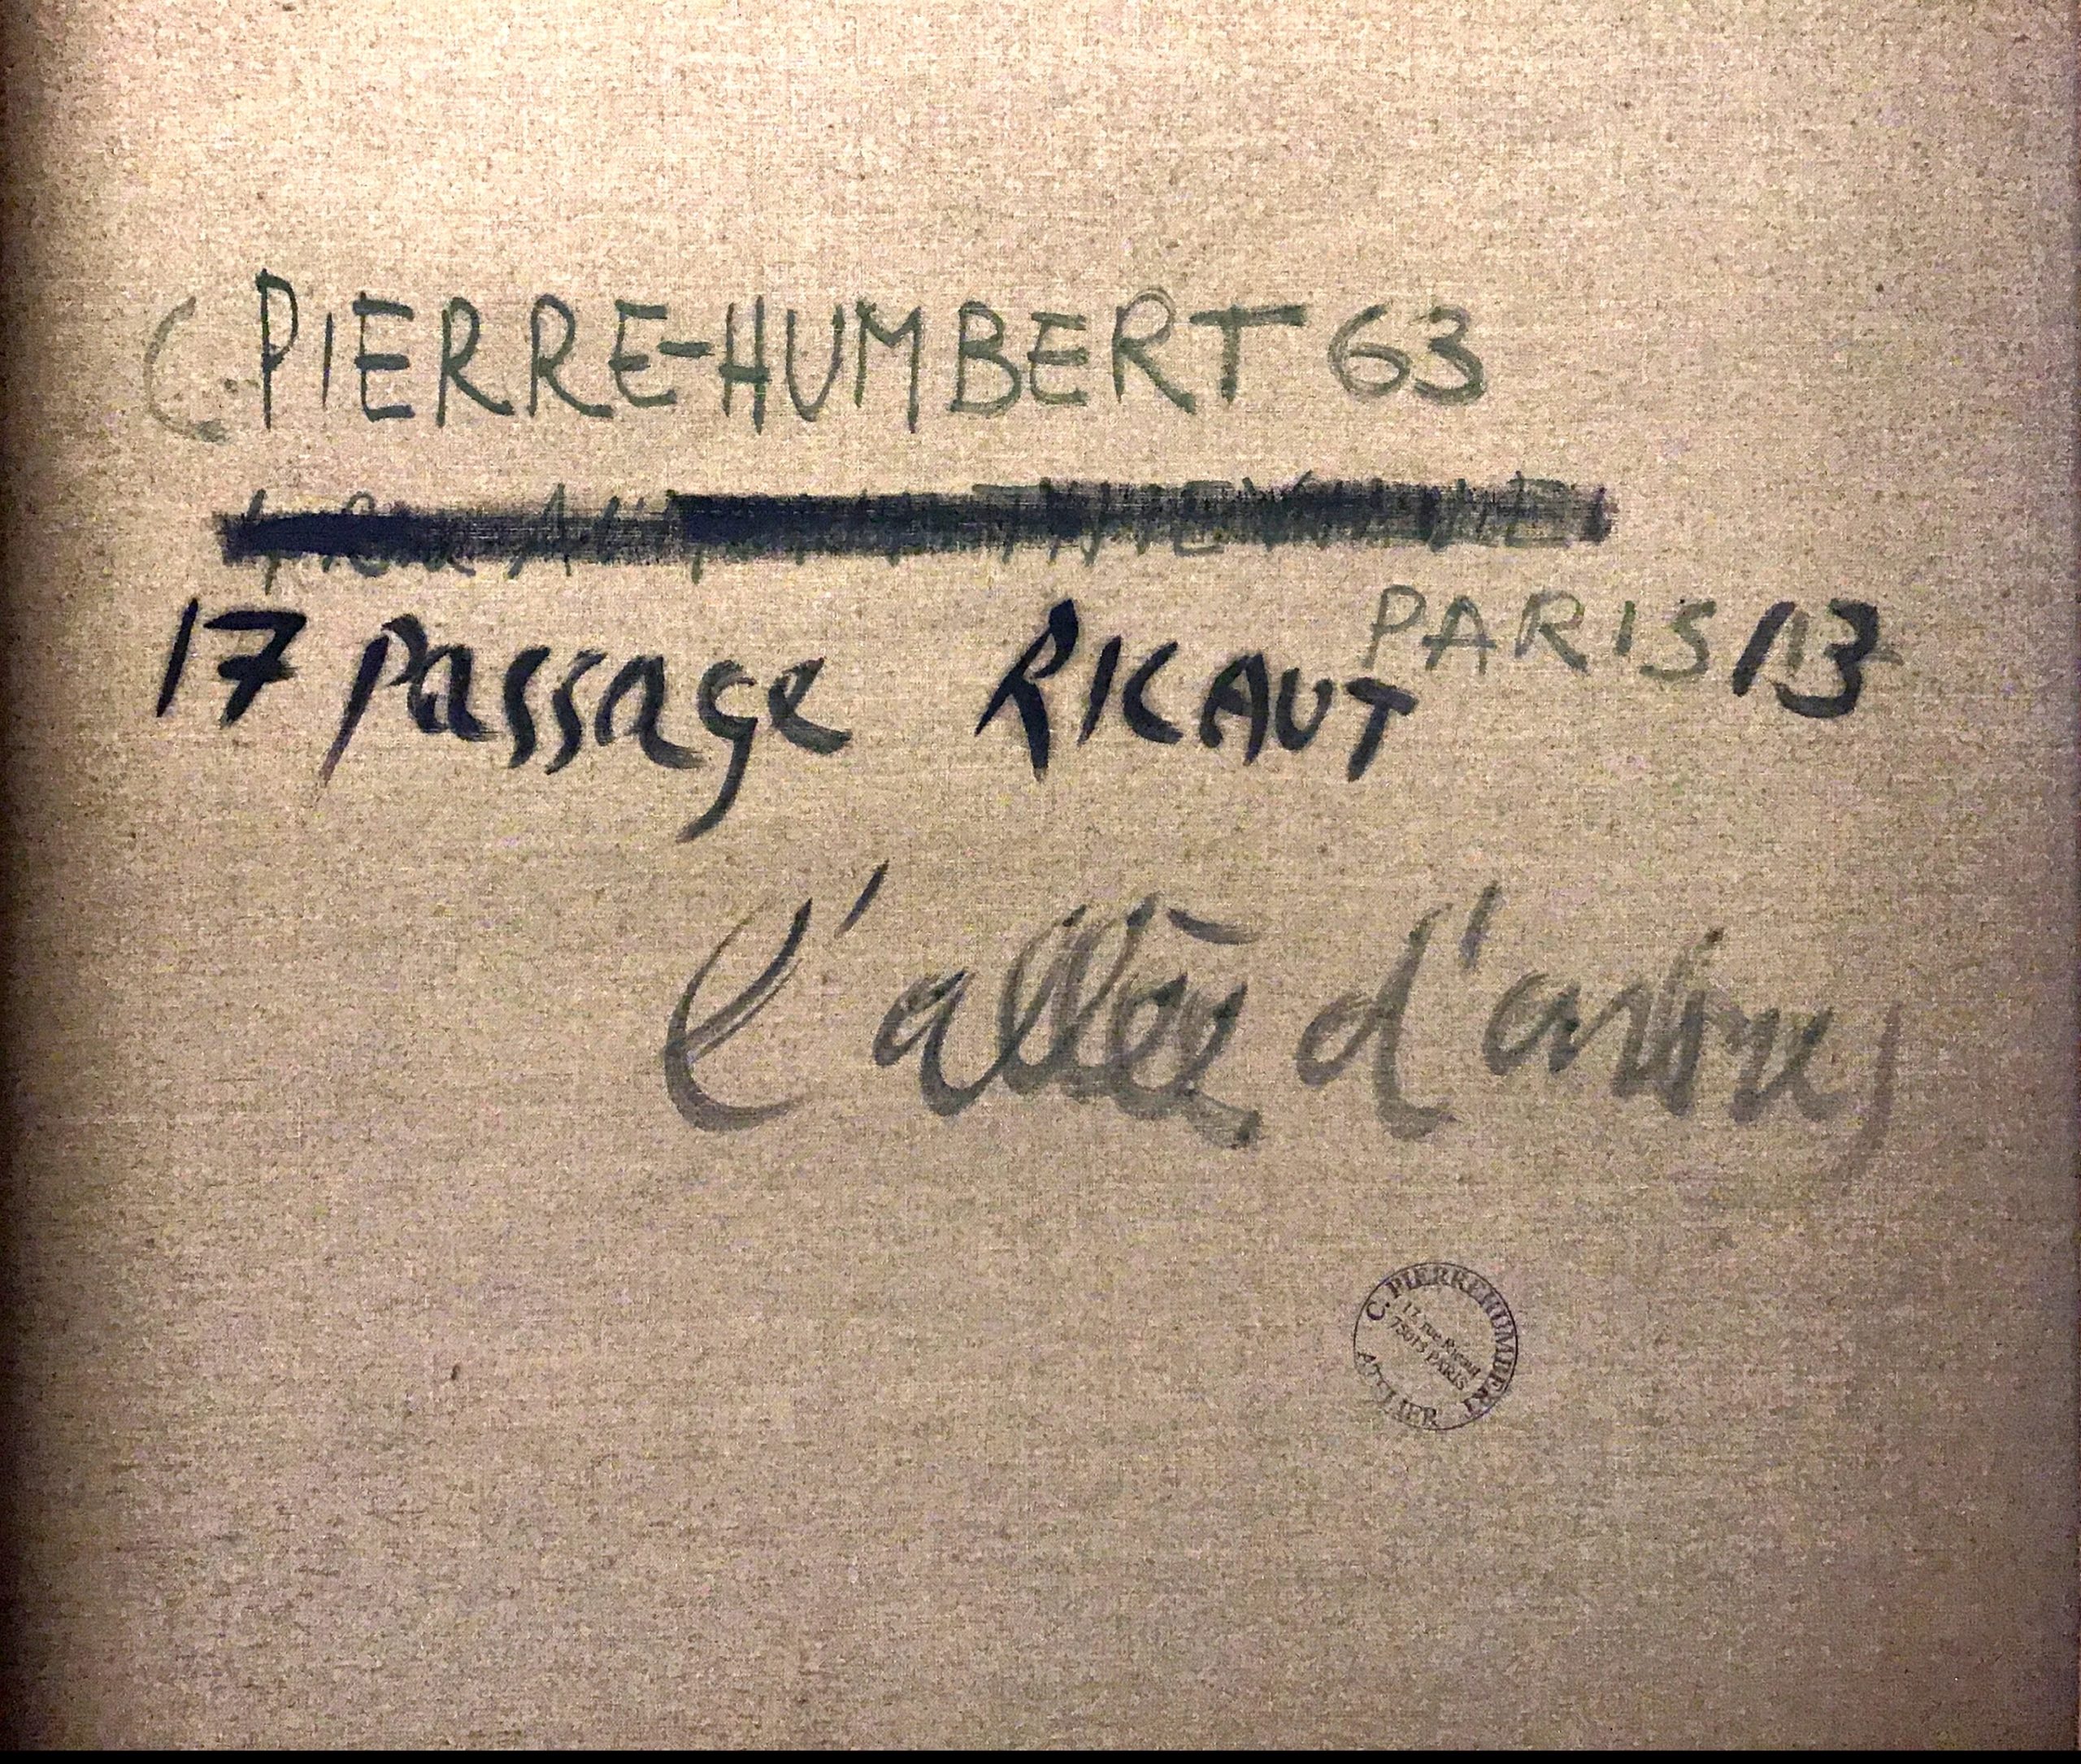 C. PIERRE-HUMBERT 63
PARIS 13
17 Passage RICAUT
l'allée d'arbres
C. PIERREHUMBERT
17, rue Ricaut
75013 PARIS
ATELIER